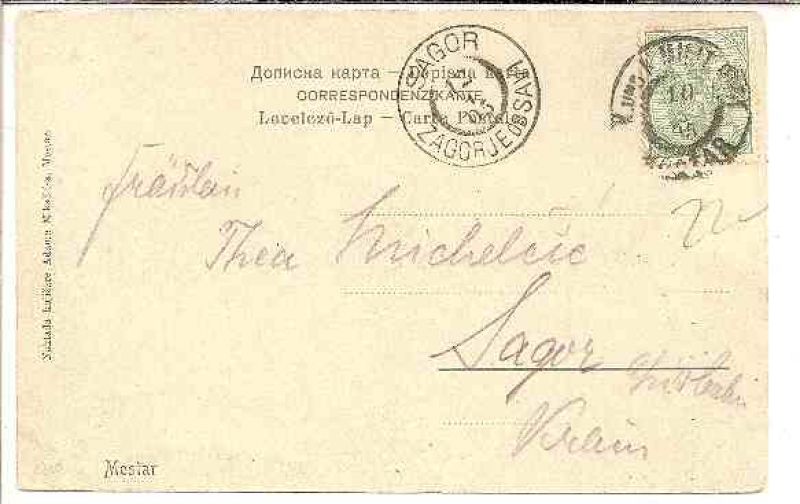 Дописна карта — Dopisna karta
CORRESPONDENZKARTE
Levelező-Lap — Carta Postale
SAGOR
ZAGORJE OB SAVI
Fräulein
Thea Michelčic
Sagor
Krain
Naklada knjižare Adama Mostar
Mostar